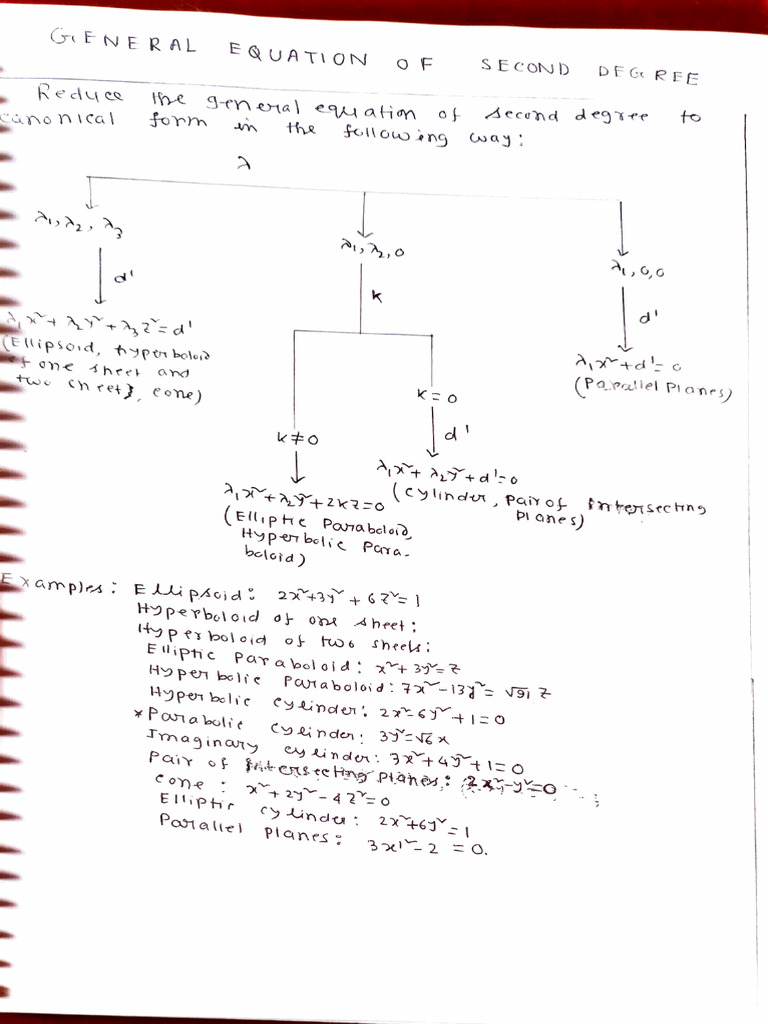 GENERAL EQUATION OF SECOND DEGREE
Reduce the general equation of second degree to
canonical form in the following way:
λ
λ₁, λ₂, λ₃
λ₁, λ₂, 0
λ₁, 0, 0
d'
k
d'
λ₁x² + λ₂y² + λ₃z² = d'
(Ellipsoid, hyperboloid
of one sheet and
two sheet}, cone)
λ₁x² + d' = 0
(Parallel Planes)
k = 0
k ≠ 0
d'
λ₁x² + λ₂y² + d' = 0
(cylinder, pair of intersecting
planes)
λ₁x² + λ₂y² + 2kz = 0
(Elliptic Paraboloid,
Hyperbolic Para-
boloid)
Examples: Ellipsoid: 2x² + 3y² + 6z² = 1
Hyperboloid of one sheet:
Hyperboloid of two sheets:
Elliptic paraboloid: x² + 3y² = z
Hyperbolic Paraboloid: 7x² - 13y² = √91 z
Hyperbolic cylinder: 2x² - 6y² + 1 = 0
*Parabolic cylinder: 3y² = √6 x
Imaginary cylinder: 3x² + 4y² + 1 = 0
Pair of intersecting planes: 2x² - y² = 0
cone: x² + 2y² - 4z² = 0
Elliptic cylinder: 2x² + 6y² = 1
Parallel planes: 3x'² - 2 = 0.